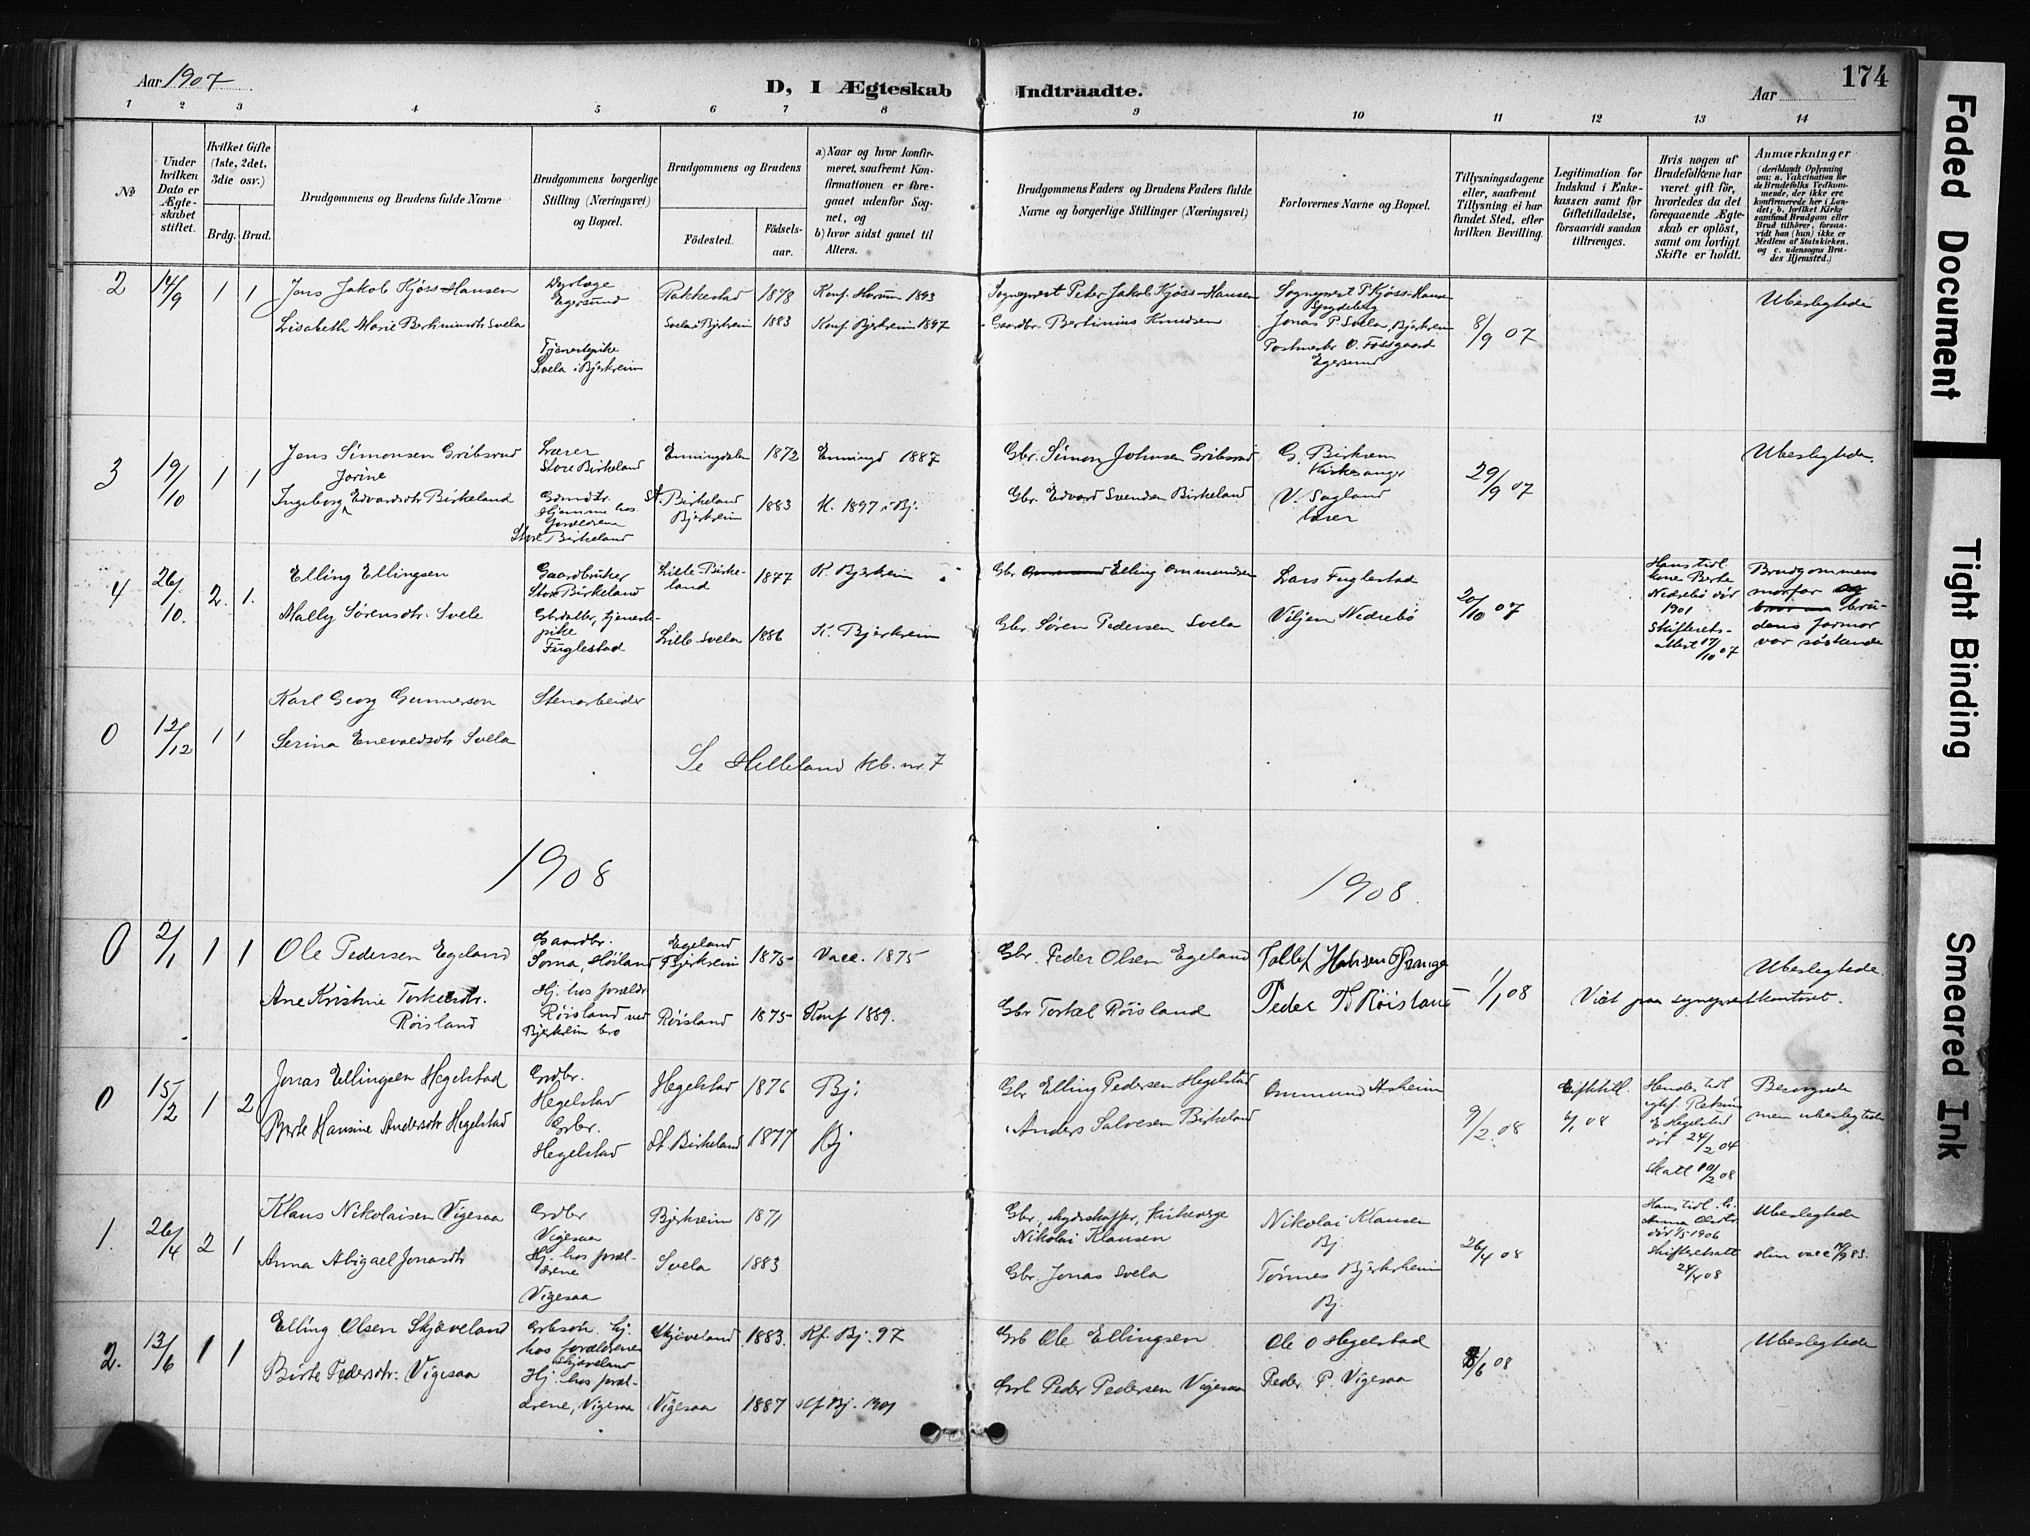 Aar 1907
D, I Ægteskab
Indtraadte.
Aar
174
1 2 3 4 5 6 7 8 9 10 11 12 13 14
No
Under hvilken Dato er Ægteskabet stiftet.
Hvilket Gifte (1ste, 2det, 3die osv.)
Brdg. Brud.
Brudgommens og Brudens fulde Navne
Brudgommens borgerlige Stilling (Næringsvei) og Bopæl.
Brudgommens og Brudens
Fødested.
Fødselsaar.
a) Naar og hvor konfirmeret, saafremt Konfirmationen er foregaaet udenfor Sognet, og
b) hvor sidst gaaet til Alters.
Brudgommens Faders og Brudens Faders fulde Navne og borgerlige Stillinger (Næringsvei)
Forlovernes Navne og Bopæl.
Tillysningsdagene eller, saafremt Tillysning ei har fundet Sted, efter hvilken Bevilling.
Legitimation for Indskud i Enkekassen samt for Giftetilladelse, forsaavidt saadan tiltrænges.
Hvis nogen af Brudefolkene har været gift før, hvorledes da det foregaaende Ægteskab er opløst, samt om lovligt Skifte er holdt.
Anmærkninger
(deriblandt Oplysning om: a. Vakcination for de Brudefolks Vedkommende, der ikke ere konfirmerede her i Landet; b. hvilket Kirkesamfund Brudgom eller Brud tilhører, forsaavidt han (hun) ikke er Medlem af Statskirken, og c. udensogns Brudes Hjemsted.)
2 14/9 1 1
Jens Jakob Kjøss-Hansen
Dyrlæge Egersund
Rakkestad 1878 Konf. Horum 1893
Sogneprest Peter Jakob Kjøss-Hansen
Sogneprest P Kjøss-Hansen
Ubeslegtede
Lisabeth Marie Bertiniusdtr Svela
Tjenestepike Svela i Bjerkreim
Svela i Bjerkreim 1883 Konf. Bjerkreim 1897
Gaardbr. Bertinius Knudsen
Jonas P. Svela, Bjerkreim
Postmester O. Fossgaard Egersund
8/9 07
3 19/10 1 1
Jens Simonsen Gribsrud
Lærer Store Birkeland
Enningdalen 1872 Enningd 1887
Gbr. Simon Johnsen Gribsrud
G. Birkrem Kirkesanger
29/9 07
Ubeslegtede.
Ingeborg Jorine Edvardsdtr Birkeland
Grdmdtr. Hjemme hos Forældrene Store Birkeland
St. Birkeland Bjerkreim 1883 K. 1897 i Bj.
Gbr. Edvard Svendsen Birkeland
V. Sagland lærer
4 26/10. 2. 1.
Elling Ellingsen
Gaardbruker Store Birkeland
Lille Birkeland 1877 K. Bjerkreim
Gbr Elling Ommundsen
Lars Fuglestad
20/10 07
Hans tidl. kone Berte Nedrebö dör 1901 Skifteretsattest 17/10 07
Brudgommens morfar og brudens farmor var søskende
Mally Sørensdtr. Svele
Gbrdatter, tjenestepike Fuglestad
Lille Svela 1886 K. Bjerkreim
Gbr. Søren Pedersen Svela
Viljen Nedrebö
0 12/12 1 1
Karl Georg Gunnerson
Stenarbeider
Serina Enevaldsdtr Svela
Se Helleland kb. nr. 7
1908
1908.
0 2/1 1 1
Ole Pedersen Egeland
Gaardbr. Soma, Høiland
Egeland Bjerkreim 1875 Vacc. 1875
Gbr. Peder Olsen Egeland
Tollef Hansen
1/1 08
Viet paa sogneprestkontoret.
Ubeslegtede
Ane Kristine Torkelsdtr. Røisland
Hj. hos forældr Røisland ved Bjerkreim bro
Røisland 1875 Konf 1889.
Gbr Torkel Røisland
Peder T. Røisland
0 15/2 1 2
Jonas Ellingsen Hegelstad
Grdbr. Hegelstad
Hegelstad 1876 Bj:
Gbr Elling Pedersen Hegelstad
Ommund Asheim
9/2 08
Giftetill. 6/1 08
Hendes tidl. egtef. E Hegelstad dör 24/2 04 Skatt 10/2 08
Besvogrede men ubeslegtede
Berte Hansine Andersdtr Hegelstad
Grbr. Hegelstad
St. Birkeland 1877 Bj
Anders Salvesen Birkeland
1. 26/4 2 1
Klaus Nikolaisen Vigesaa
Grdbr Vigesaa
Bjerkreim 1871
Gbr, skydsskaffer, kirkeverge Nikolai Klausen
Nikolai Klausen Bj
26/4 08
Hans tidl. h. Anna Olsdtr dör 1/5 1906 Skifteretsatt 24/4 08
Ubeslegtede
Anna Abigael Jonasdtr
Hj. hos forældrene Vigesaa
Svela 1883
Gbr Jonas Svela
Tønnes Bjerkreim Bj.
2. 13/6 1 1
Elling Olsen Skjæveland
Grbsøn. hj. hos forældrene Skjæveland
Skjæveland 1883. Kf. Bj. 97
Grb Ole Ellingsen
Ole O Hegelstad
8/6 08
Ubeslegtede
Birte Pedersdtr. Vigesaa
Hj. hos forældrene, Vigesaa
Vigesaa 1887 Kf Bj. 1901
Grb Peder Pedersen Vigesaa
Peder P. Vigesaa
Faded Document
Tight Binding
Smeared Ink